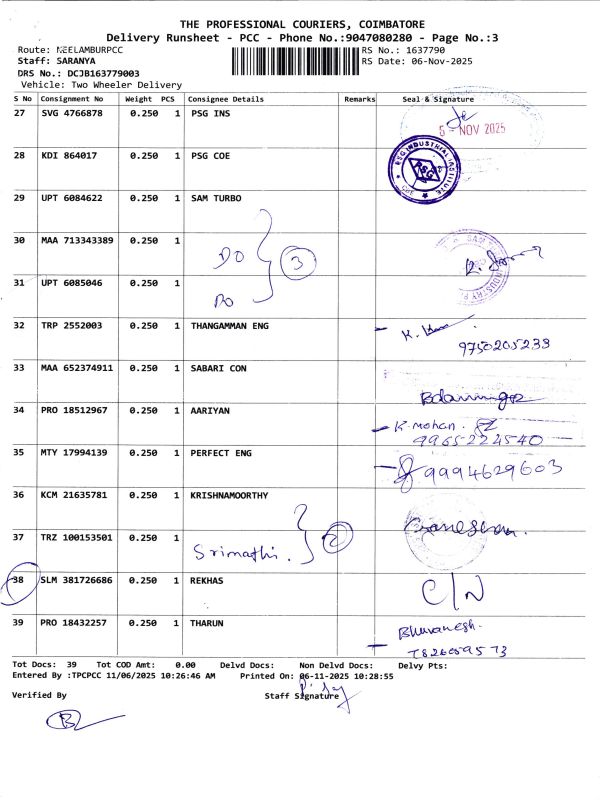 THE PROFESSIONAL COURIERS, COIMBATORE
Delivery Runsheet - PCC - Phone No.:9047080280 - Page No.:3
Route: NEELAMBURPCC RS No.: 1637790
Staff: SARANYA RS Date: 06-Nov-2025
DRS No.: DCJB163779003
Vehicle: Two Wheeler Delivery
S No Consignment No Weight PCS Consignee Details Remarks Seal & Signature
27 SVG 4766878 0.250 1 PSG INS
NOV 2025
28 KDI 864017 0.250 1 PSG COE
PSG INDUSTRIAL INSTITUTE
PSG
29 UPT 6084622 0.250 1 SAM TURBO
30 MAA 713343389 0.250 1
DO 3
31 UPT 6085046 0.250 1
DO
32 TRP 2552003 0.250 1 THANGAMMAN ENG
9750205233
33 MAA 652374911 0.250 1 SABARI CON
34 PRO 18512967 0.250 1 AARIYAN K. mohan.
9965224540
35 MTY 17994139 0.250 1 PERFECT ENG
9994629603
36 KCM 21635781 0.250 1 KRISHNAMOORTHY
Ganeshan.
37 TRZ 100153501 0.250 1
Srimathi. 2
38 SLM 381726686 0.250 1 REKHAS C/N
39 PRO 18432257 0.250 1 THARUN
Bhuvanesh.
Tot Docs: 39 Tot COD Amt: 0.00 Delvd Docs: Non Delvd Docs: Delvy Pts:
Entered By :TPCPCC 11/06/2025 10:26:46 AM Printed On: 06-11-2025 10:28:55
Verified By Staff Signature